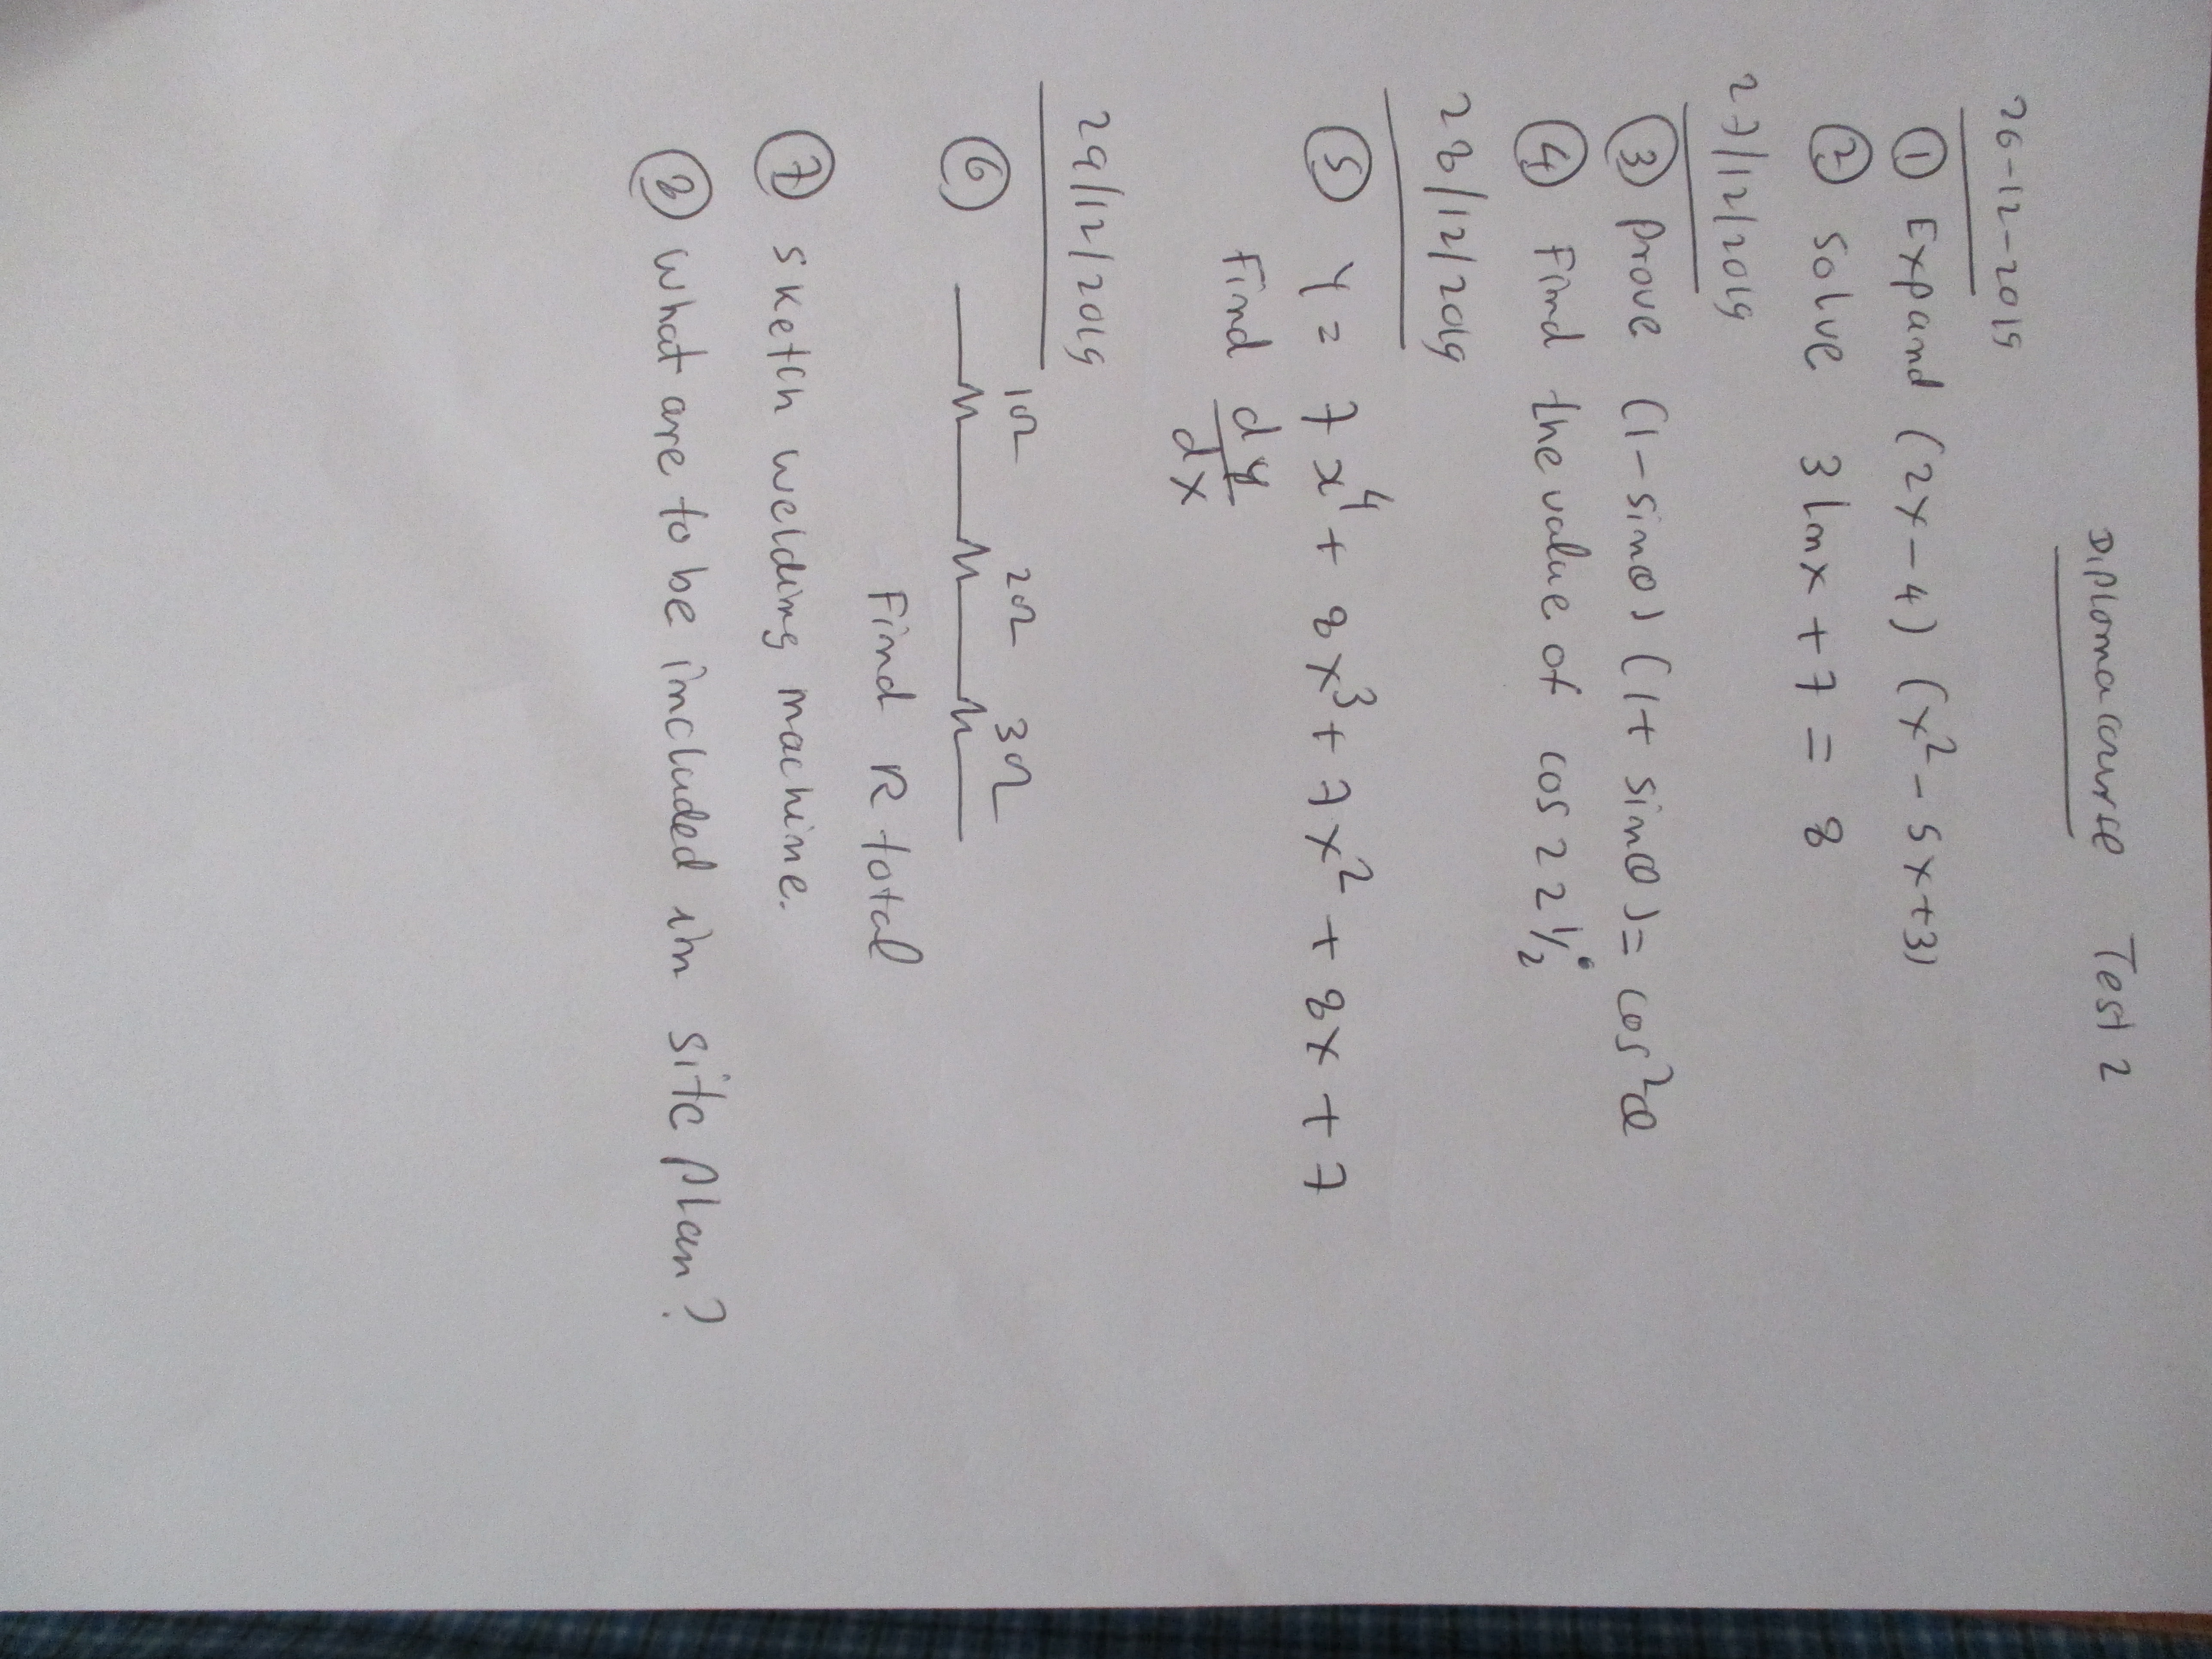 Diploma course Test 2
26-12-2019
① Expand (2x-4) (x²-5x+3)
② Solve 3 lnx + 7 = 8
27/12/2019
③ Prove (1-sinθ) (1+ sinθ) = cos²θ
④ Find the value of cos 22½°
28/12/2019
⑤ y = 7x⁴ + 8x³ + 7x² + 8x + 7
Find dy/dx
29/12/2019
⑥ 1Ω 2Ω 3Ω
Find R total
⑦ sketch welding machine.
⑧ What are to be included in site plan?